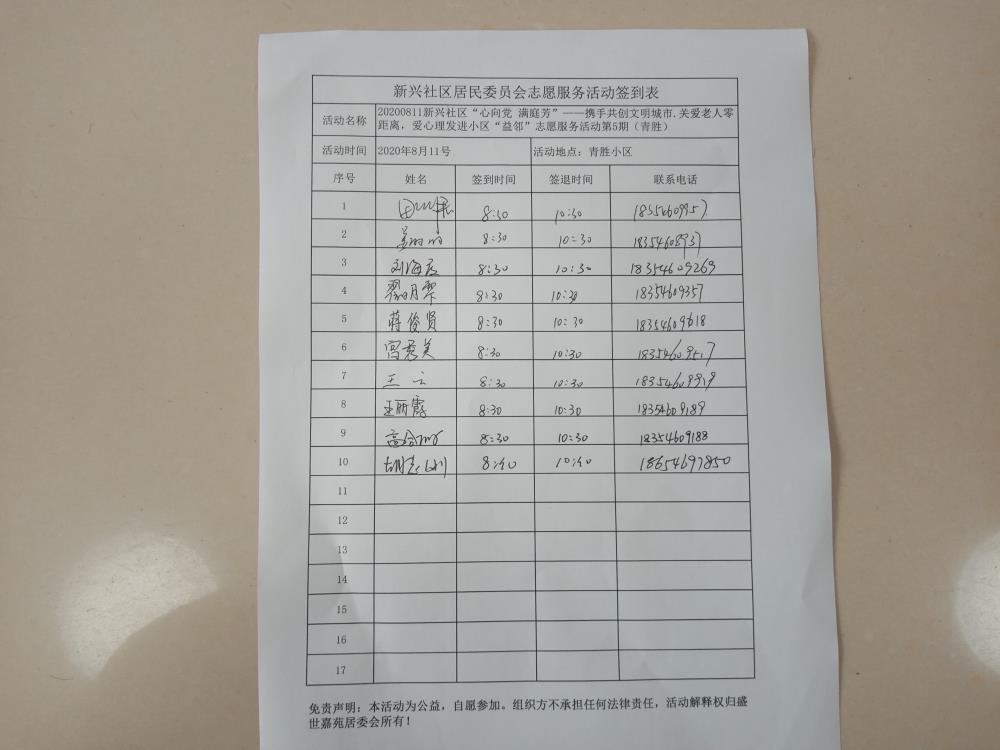 新兴社区居民委员会志愿服务活动签到表
活动名称 20200811新兴社区“心向党 满庭芳”——携手共创文明城市.关爱老人零
距离，爱心理发进小区“益邻”志愿服务活动第5期（青胜）
活动时间 2020年8月11号 活动地点：青胜小区
序号 姓名 签到时间 签退时间 联系电话
1 8:30 10:30 18354609957
2 8:30 10:30 18354608937
3 8:30 10:30 18354609269
4 8:30 10:30 18354609357
5 蒋俊贤 8:30 10:30 18354609618
6 宫秀美 8:30 10:30 18354609517
7 王云 8:30 10:30 18354609919
8 王丽霞 8:30 10:30 18354609189
9 8:30 10:30 18354609188
10 8:40 10:40 18654697850
11
12
13
14
15
16
17
免责声明：本活动为公益，自愿参加。组织方不承担任何法律责任，活动解释权归盛
世嘉苑居委会所有！